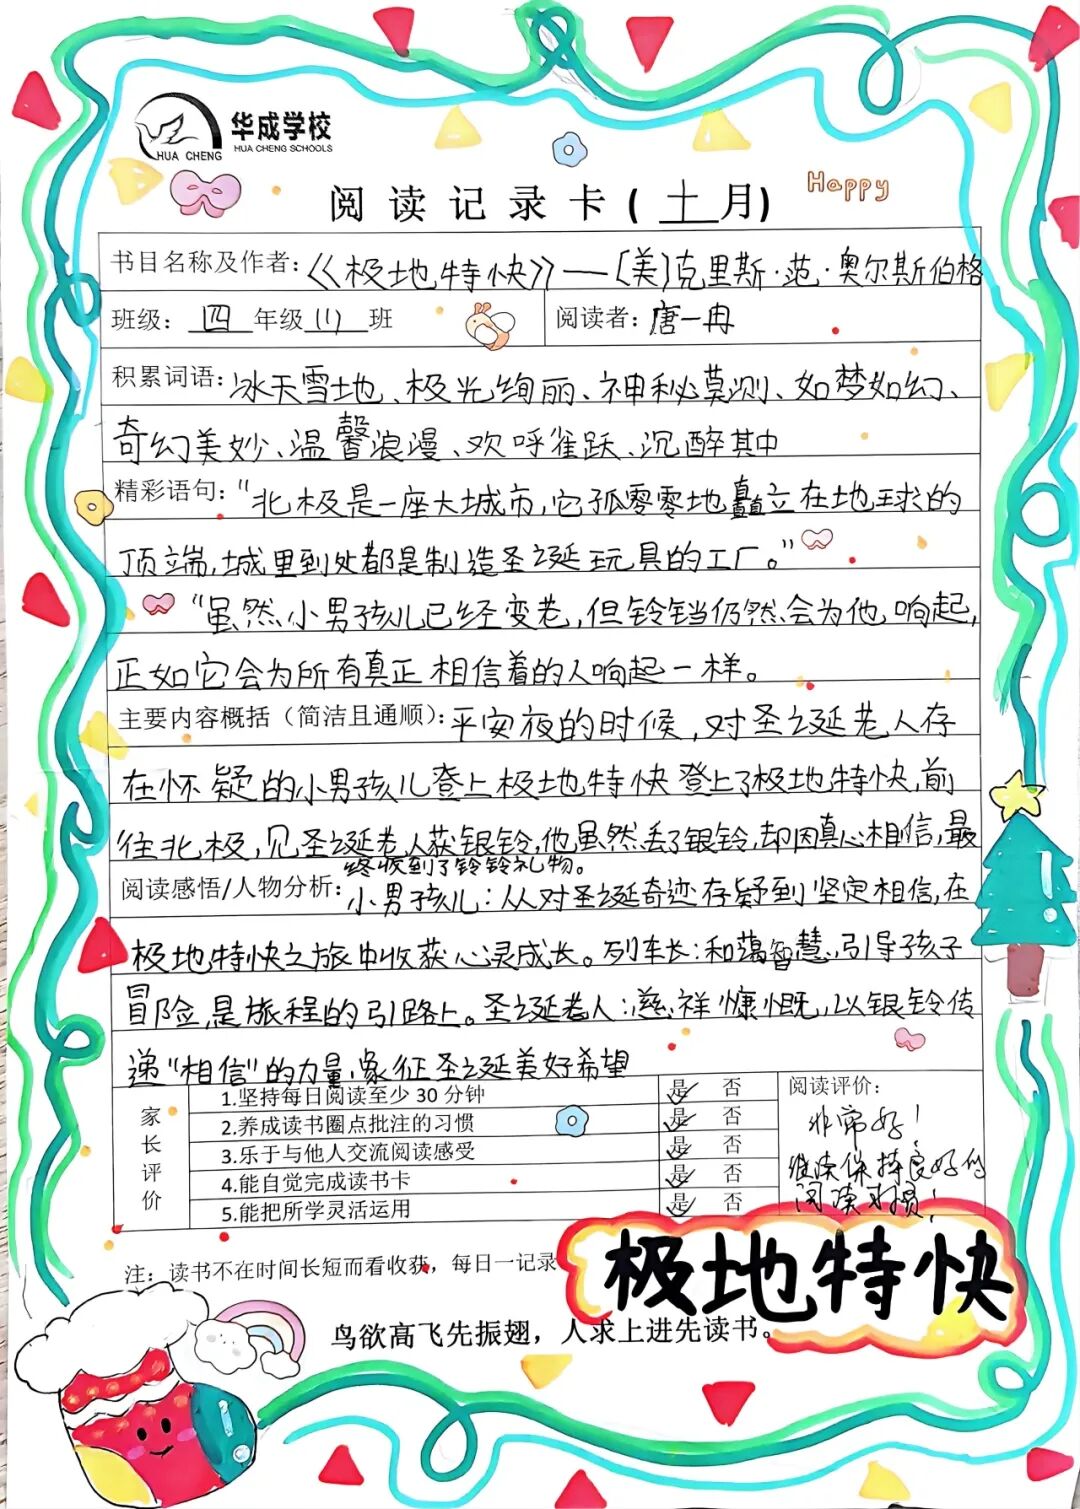 华成学校
HUA CHENG
HUA CHENG SCHOOLS
Happy
阅读记录卡(十月)
书目名称及作者:《极地特快》—[美]克里斯·范·奥尔斯伯格
班级: 四 年级 (1) 班 阅读者: 唐一冉
积累词语: 冰天雪地、极光绚丽、神秘莫测、如梦如幻、
奇幻美妙、温馨浪漫、欢呼雀跃、沉醉其中
精彩语句: “北极是一座大城市,它孤零零地矗立在地球的
顶端,城里到处都是制造圣诞玩具的工厂。”
“虽然小男孩儿已经变老,但铃铛仍然会为他响起,
正如它会为所有真正相信着的人响起一样。
主要内容概括(简洁且通顺): 平安夜的时候,对圣诞老人存
在怀疑的小男孩儿登上极地特快登上了极地特快,前
往北极,见圣诞老人获银铃,他虽然丢了银铃,却因真心相信,最
终收到了铃铃礼物。
阅读感悟/人物分析: 小男孩儿:从对圣诞奇迹存疑到坚定相信,在
极地特快之旅中收获心灵成长。列车长:和蔼智慧,引导孩子
冒险,是旅程的引路上。圣诞老人:慈祥慷慨,以银铃传
递“相信”的力量,象征圣诞美好希望
家长评价
1.坚持每日阅读至少 30 分钟 是 否
2.养成读书圈点批注的习惯 是 否
3.乐于与他人交流阅读感受 是 否
4.能自觉完成读书卡 是 否
5.能把所学灵活运用 是 否
阅读评价:
非常好!
继续保持良好的
阅读习惯!
注: 读书不在时间长短而看收获,每日一记录
极地特快
鸟欲高飞先振翅,人求上进先读书。